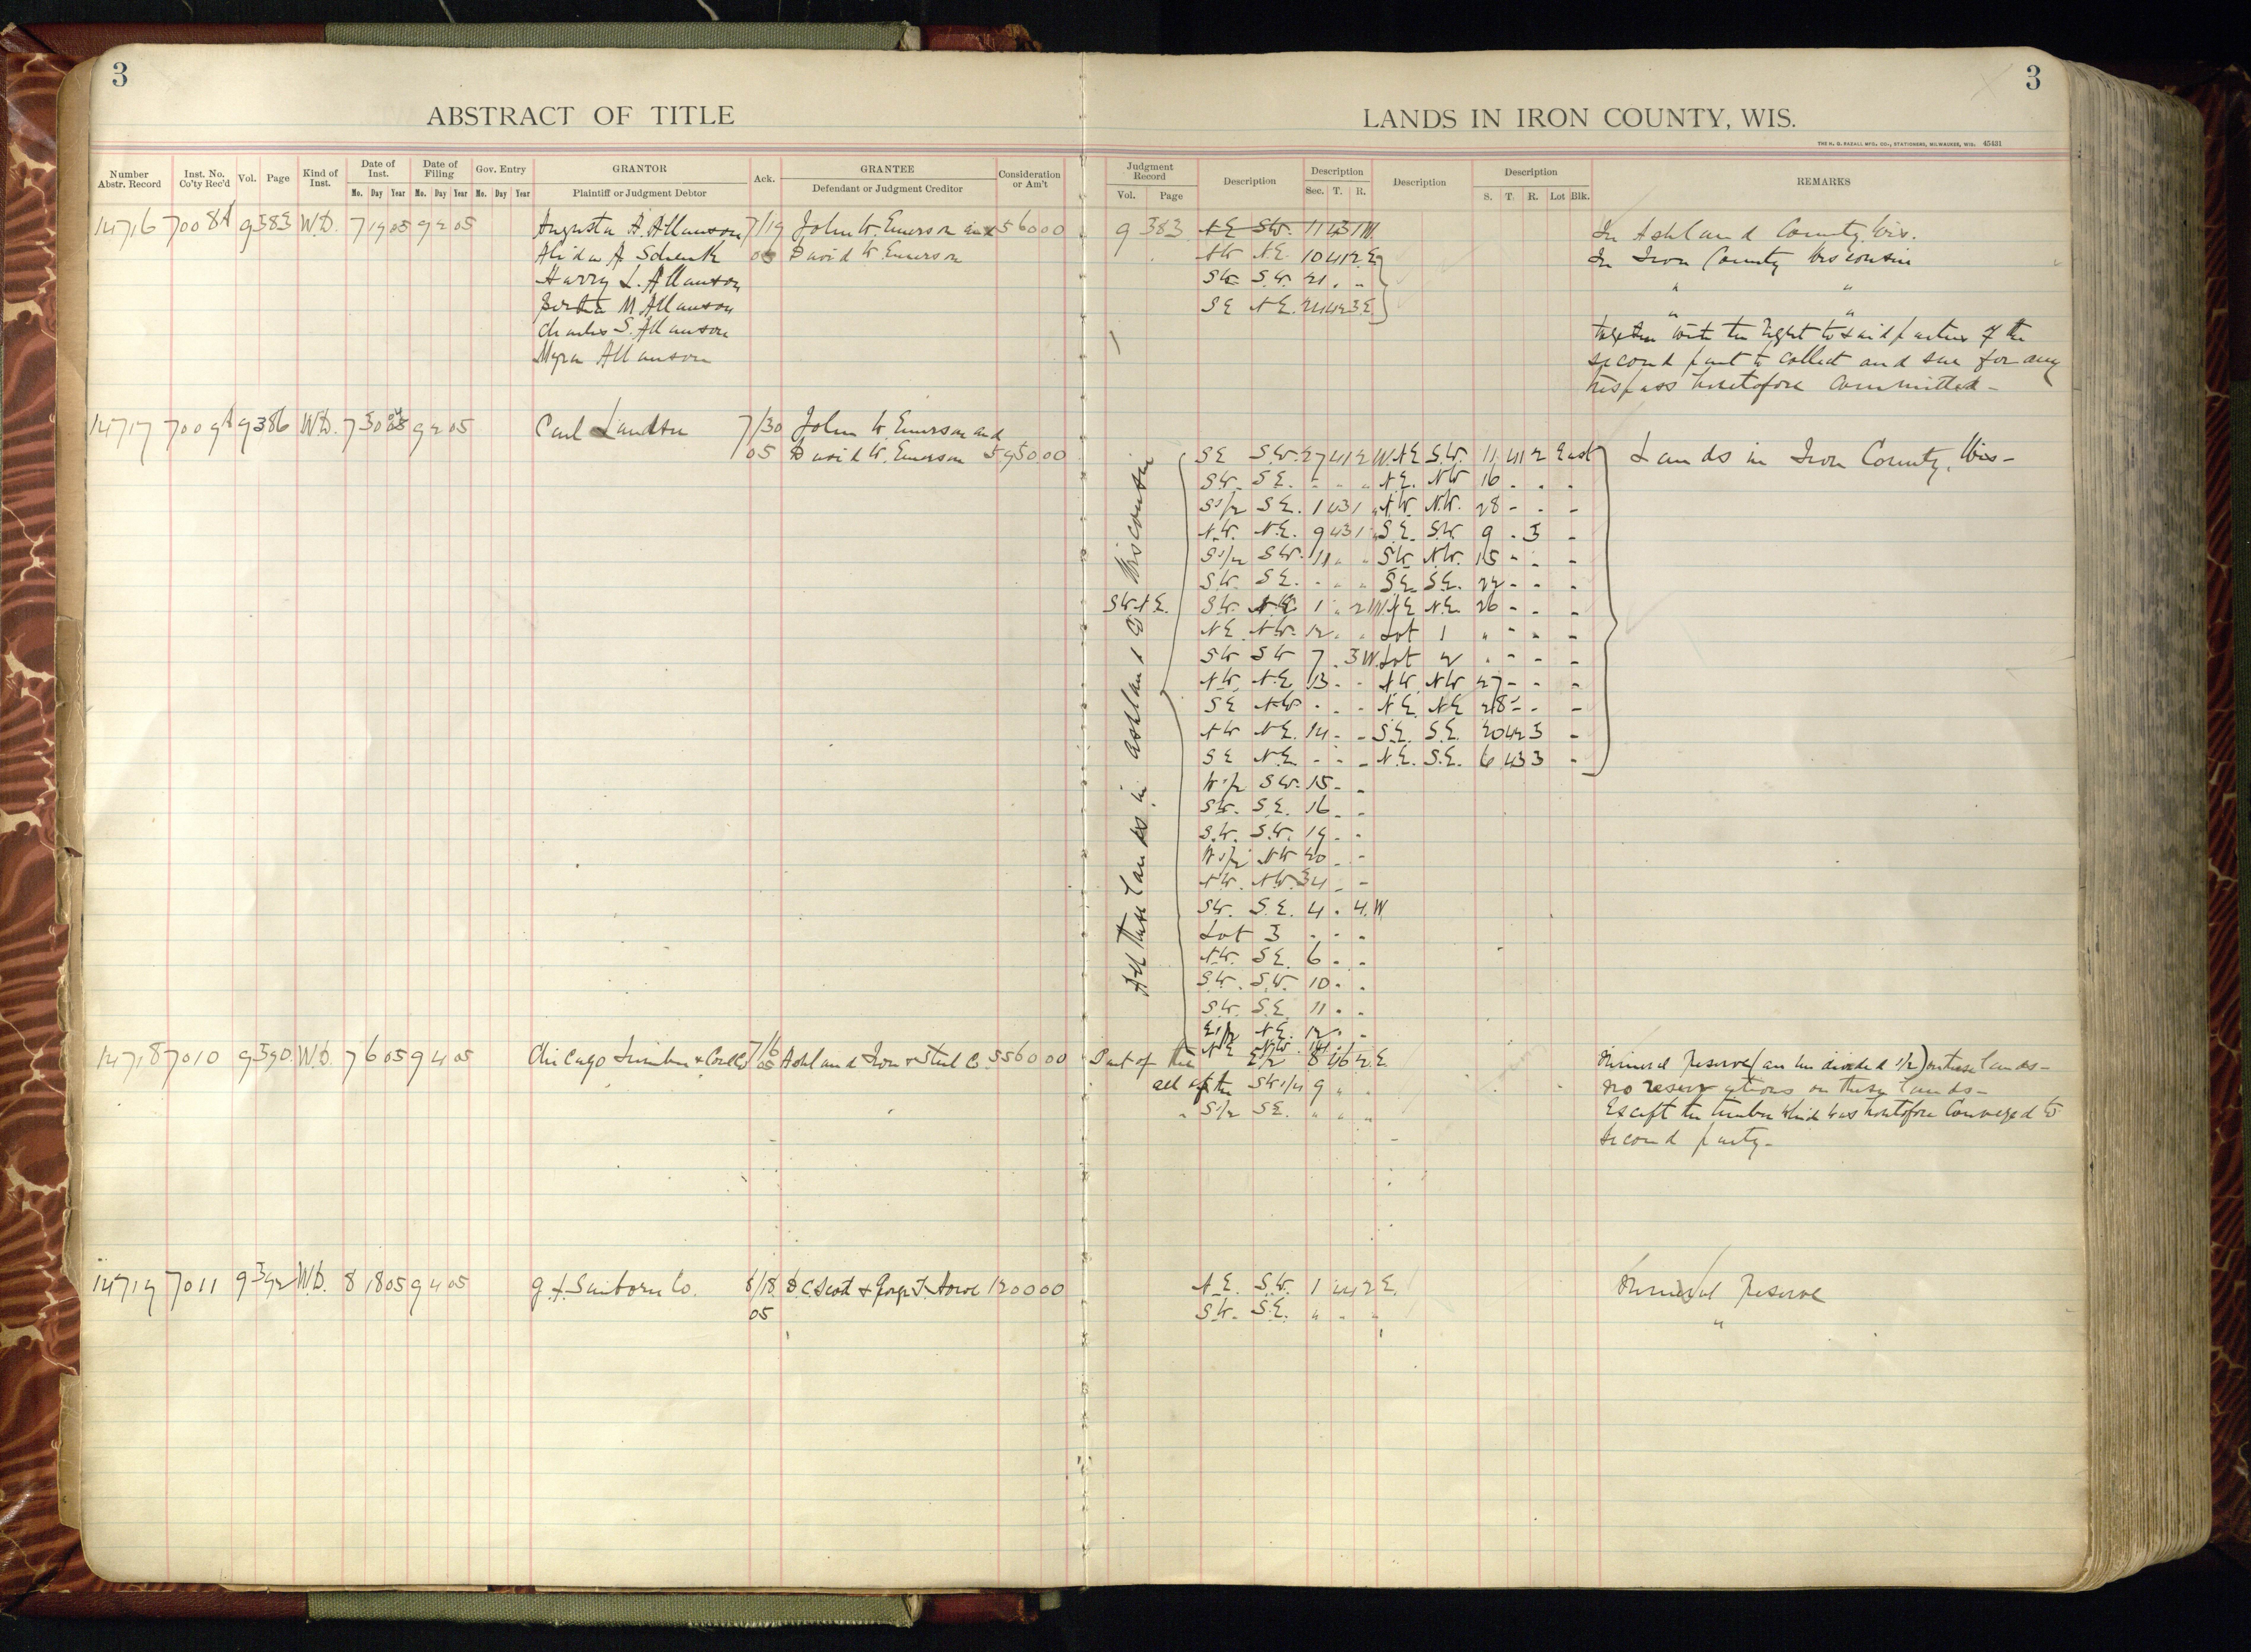 3
3
ABSTRACT OF TITLE
LANDS IN IRON COUNTY, WIS.
THE H. G. RAZALL MFG. CO., STATIONERS, MILWAUKEE, WIS. 45431
Number Abstr. Record Inst. No. Co'ty Rec'd Vol. Page Kind of Inst. Date of Inst. Date of Filing Gov. Entry GRANTOR Ack. GRANTEE Consideration or Am't
Mo. Day Year Mo. Day Year Mo. Day Year Plaintiff or Judgment Debtor Defendant or Judgment Creditor
Judgment Record Description Description Description Description REMARKS
Vol. Page Sec. T. R. S. T. R. Lot Blk.
14716 7008A 9 383 W.D. 7 19 05 9 2 05 Augusta A. Allanson 7/19 John W. Emerson and 560 00 9 383 NE SW. 11 43 1 W. In Ashland County, Wis.
Alida A Schenk 05 David W. Emerson NW NE 10 41 2 E In Iron County Wisconsin
Harry L. Allanson SW S.W. 21 " " " "
Bertha M Allanson SE NE. 24 42 3 E " "
Charles S. Allanson together with the right to said parties of the
Myra Allanson second part to collect and sue for any
trespass heretofore committed -
14717 7009A 9 386 W.D. 7 30 05 9 2 05 Carl 7/30 John W. Emerson and
05 David W. Emerson 5950.00 SE S.W. 27 41 2 W. NE S.W. 11 41 2 East Lands in Iron County, Wis-
SW. SE. - " " NE. NW 16 - - -
S1/2 SE. 1 43 1 " NW. N.W. 28 - - -
N.W. N.E. 9 43 1 " S.E. S.W. 9 - 3 -
S1/2 SW. 11 " " SW N.W. 15 - - -
SW. SE. - " " SE. SE. 22 - - -
SW NE. SW. 1 " 2 W NE N.E. 26 - - -
NE. NW. 12 " " Lot 1 " - - -
SW SW 7 . 3 W. Lot 2 " - - -
N.W. N.E 13 - - NW. NW 27 - - -
SE NW - - - N.E. NE 28 - - -
NW NE. 14 - - S.E. S.E. 20 42 3 -
SE N.E. - - - N.E. S.E. 6 43 3 -
W1/2 SW. 15 - -
SW. S.E. 16 - -
S.W. S.W. 19 - -
W1/2 NW 20 - -
NW. NW. 34 - -
SW. S.E. 4 . 4 W
Lot 3 - - -
NW. SE. 6 - -
S.W. S.W. 10 - -
S.W. S.E. 11 - -
E1/2 NE. 12 - -
NE N.W. 14 - -
All these lands in Ashland Co Wisconsin
14718 7010 9 390 W.D. 7 6 05 9 4 05 Chicago Lumber & Coal Co 7/6 05 Ashland Iron & Steel Co. 5560 00 Part of the E1/2 8 46 2 E. Mineral Reserve (an undivided 1/2) on these lands-
all of the SW1/4 9 " " no reservations on these lands-
" S1/2 SE. " " " Except the timber which was heretofore conveyed to
second party-
14719 7011 9 392 W.D. 8 18 05 9 4 05 G. F. Sanborn Co. 8/18 D. C. Scott & 1200 00 N.E. S.W. 1 44 2 E. Mineral Reserve
05 SW. S.E. " " " "